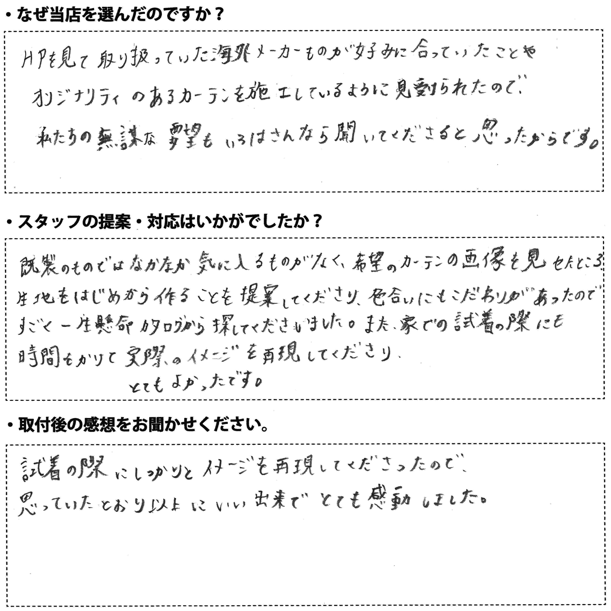 ・なぜ当店を選んだのですか？
HPを見て取り扱っていた海外メーカーものが好みに合っていたことや
オリジナリティのあるカーテンを施工しているように見受けられたので、
私たちの無謀な要望もいろはさんなら聞いてくださると思ったからです。
・スタッフの提案・対応はいかがでしたか？
既製のものではなかなか気に入るものがなく、希望のカーテンの画像を見せたところ
生地をはじめから作ることを提案してくださり、色合いにもこだわりがあったので
すごく一生懸命カタログから探してくださいました。また、家での試着の際にも
時間をかりて実際のイメージを再現してくださり、
とてもよかったです。
・取付後の感想をお聞かせください。
試着の際にしっかりとイメージを再現してくださったので、
思っていたとおり以上にいい出来でとても感動しました。